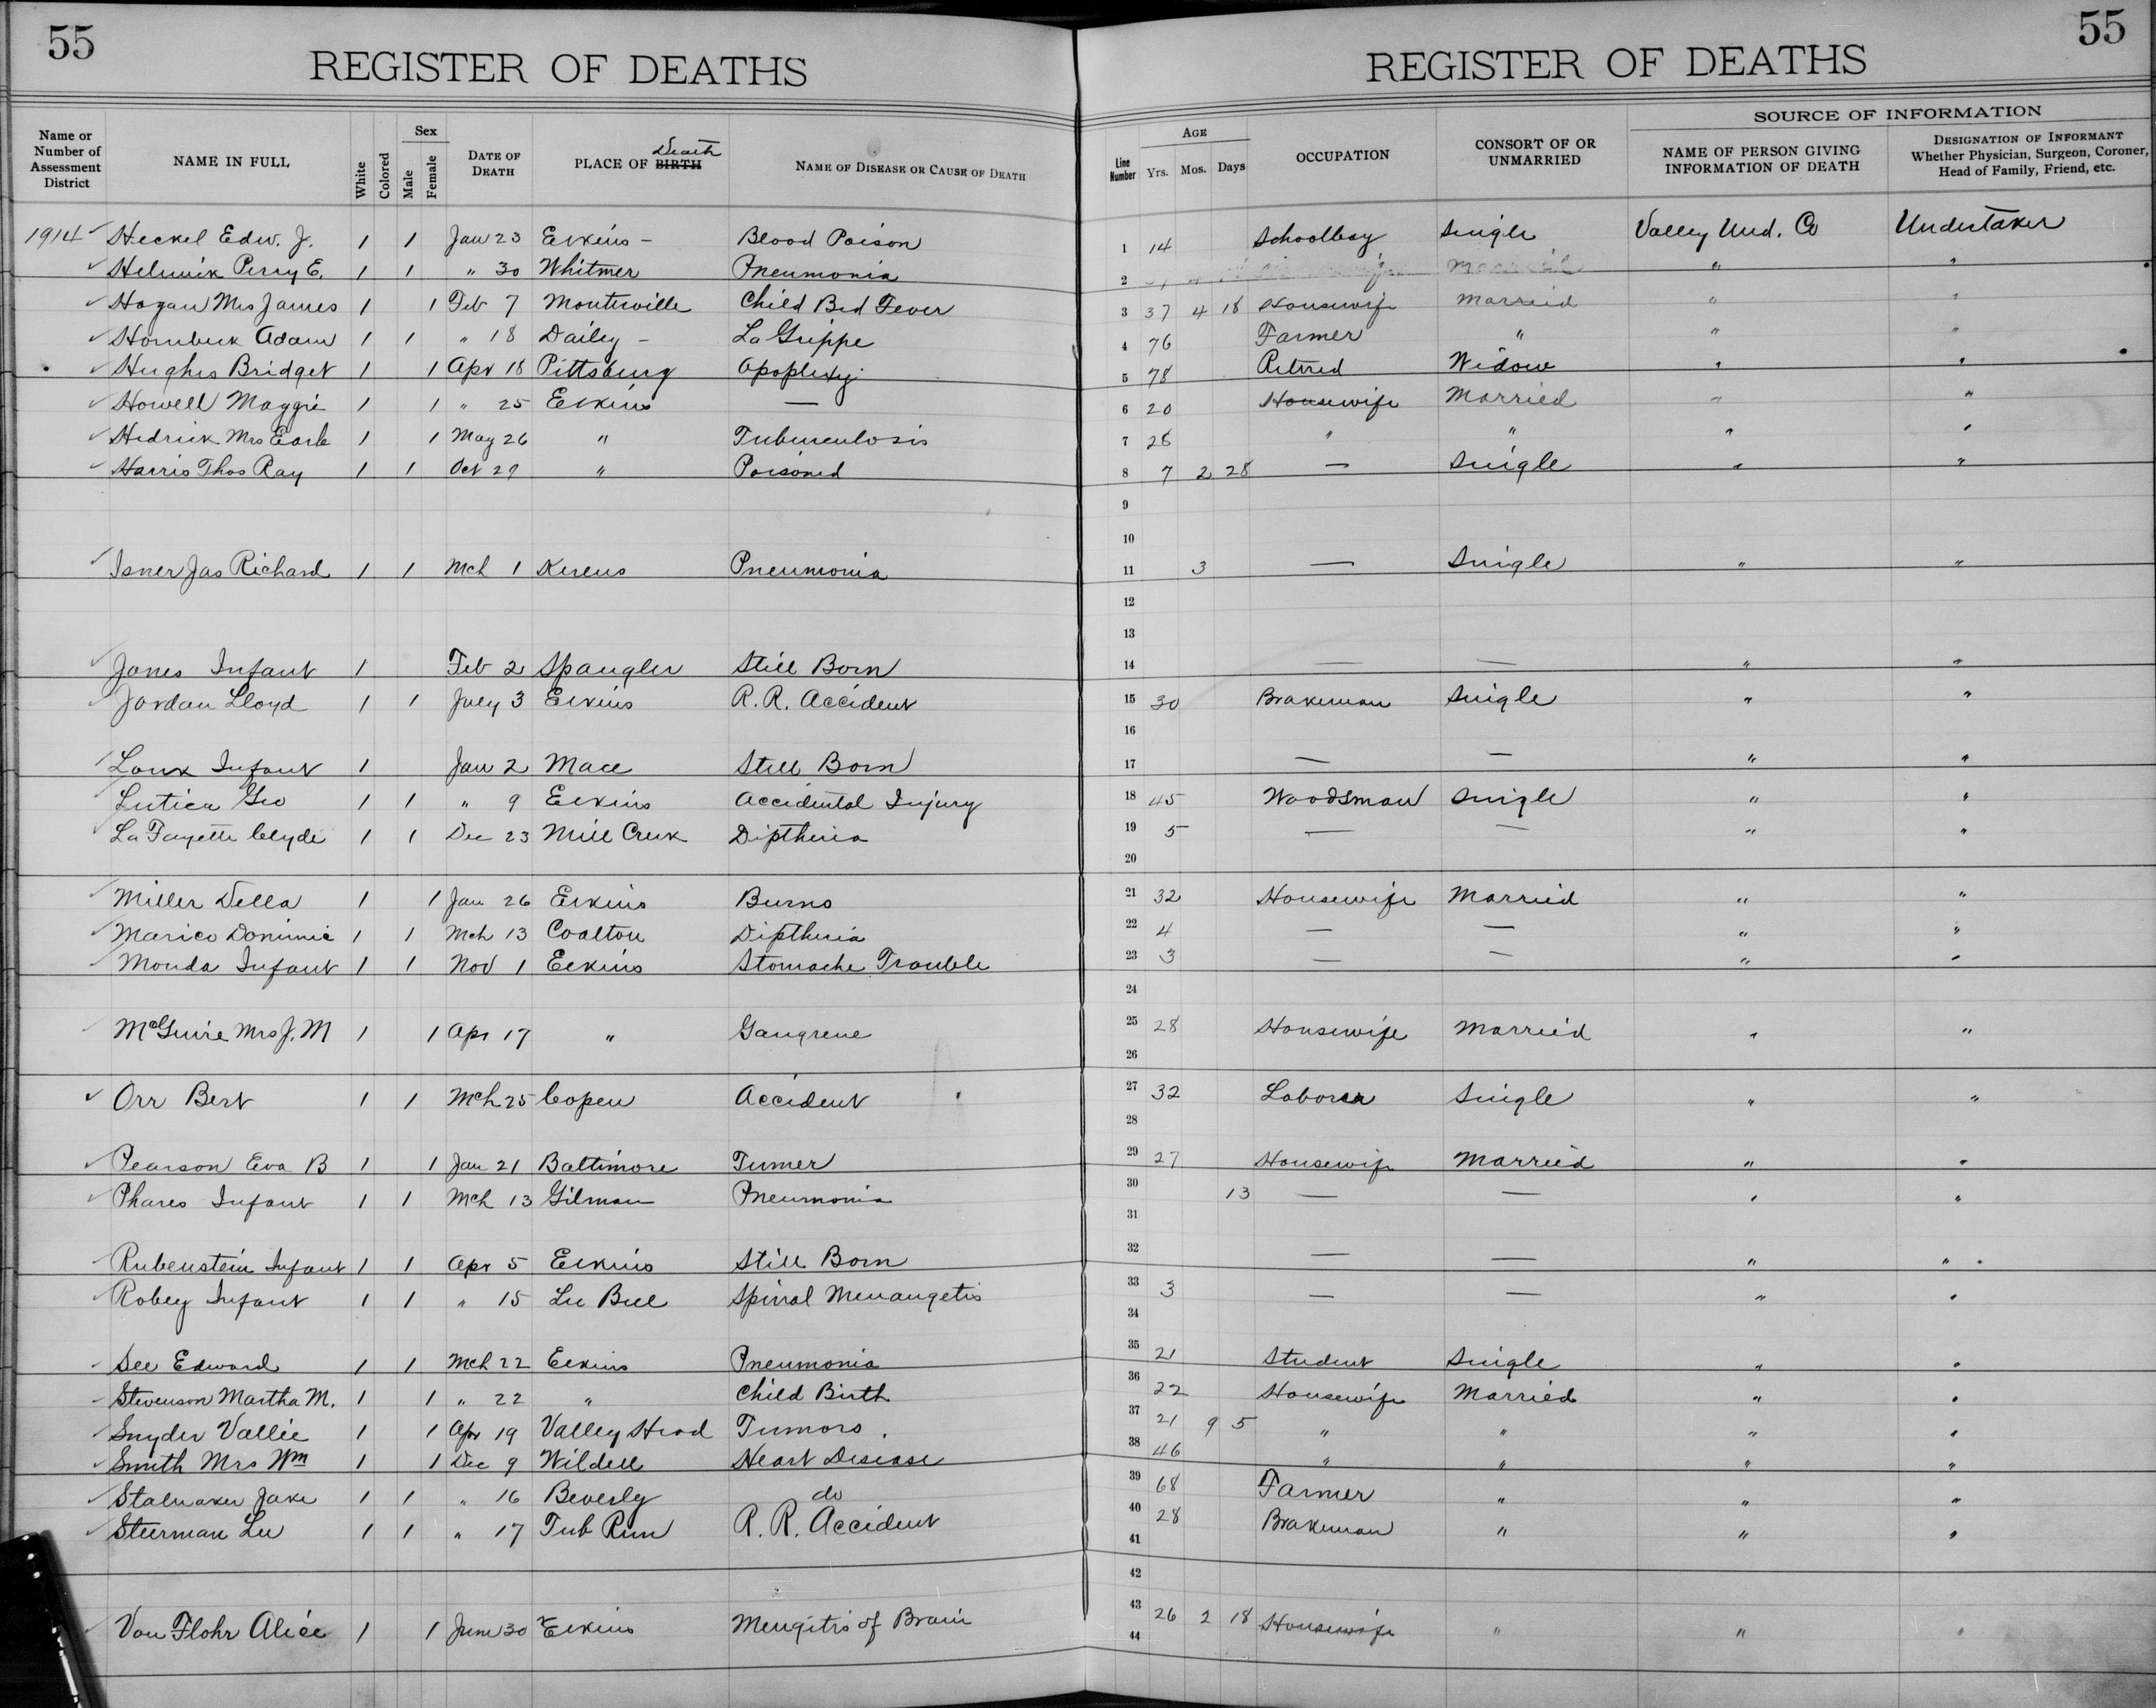 55
REGISTER OF DEATHS
Name or Number of Assessment District
NAME IN FULL
White
Colored
Sex
Male
Female
DATE OF DEATH
PLACE OF BIRTH Death
NAME OF DISEASE OR CAUSE OF DEATH
55
REGISTER OF DEATHS
Line Number
AGE
Yrs. Mos. Days
OCCUPATION
CONSORT OF OR UNMARRIED
SOURCE OF INFORMATION
NAME OF PERSON GIVING INFORMATION OF DEATH
DESIGNATION OF INFORMANT
Whether Physician, Surgeon, Coroner, Head of Family, Friend, etc.
1914 Heckel Edw. J. 1 1 Jan 23 Elkins - Blood Poison 1 14 Schoolboy Single Valley Und. Co Undertaker
Helmick Perry E. 1 1 " 30 Whitmer Pneumonia 2 " "
Hogan Mrs James 1 1 Feb 7 Monterville Child Bed Fever 3 37 4 18 Housewife Married " "
Hornbeck Adam 1 1 " 18 Dailey - La Grippe 4 76 Farmer " " "
Hughes Bridget 1 1 Apr 18 Pittsburg Apoplexy 5 78 Retired Widow " "
Howell Maggie 1 1 " 25 Elkins — 6 20 Housewife Married " "
Hedrick Mrs Earle 1 1 May 26 " Tuberculosis 7 28 " " " "
Harris Thos Ray 1 1 Oct 29 " Poisoned 8 7 2 28 — Single " "
9
10
Isner Jas Richard 1 1 Mch 1 Kerens Pneumonia 11 3 — Single " "
12
13
Jones Infant 1 Feb 2 Spangler Still Born 14 — — " "
Jordan Lloyd 1 1 July 3 Elkins R. R. Accident 15 30 Brakeman Single " "
16
Infant 1 Jan 2 Mace Still Born 17 — — " "
Lutica Geo 1 1 " 9 Elkins Accidental Injury 18 45 Woodsman Single " "
La Fayette Clyde 1 1 Dec 23 Mill Creek Diptheria 19 5 — — " "
20
Miller Della 1 1 Jan 26 Elkins Burns 21 32 Housewife Married " "
Marico Dominic 1 1 Mch 13 Coalton Diptheria 22 4 — — " "
Monda Infant 1 1 Nov 1 Elkins Stomache Trouble 23 3 — — " "
24
McGuire Mrs J. M 1 1 Apr 17 " Gangrene 25 28 Housewife Married " "
26
Orr Bert 1 1 Mch 25 Copen Accident 27 32 Laborer Single " "
28
Pearson Eva B 1 1 Jan 21 Baltimore Tumer 29 27 Housewife Married " "
Phares Infant 1 1 Mch 13 Gilman Pneumonia 30 13 — — " "
31
Rubenstein Infant 1 1 Apr 5 Elkins Still Born 32 — — " "
Robey Infant 1 1 " 15 Lee Bell Spinal Menangetis 33 3 — — " "
34
See Edward 1 1 Mch 22 Elkins Pneumonia 35 21 Student Single " "
Stevenson Martha M. 1 1 " 22 " Child Birth 36 22 Housewife Married " "
Snyder Vallie 1 1 Apr 19 Valley Head Tumors 37 21 9 5 " " " "
Smith Mrs Wm 1 1 Dec 9 Wildell Heart Disease 38 46 " " " "
Stalnaker Jake 1 1 " 16 Beverly do 39 68 Farmer " " "
Steerman Lee 1 1 " 17 Tub Run R. R. Accident 40 28 Brakeman " " "
41
42
43
Von Flohr Alice 1 1 June 30 Elkins Mengitis of Brain 26 2 18 Housewife " " "
44